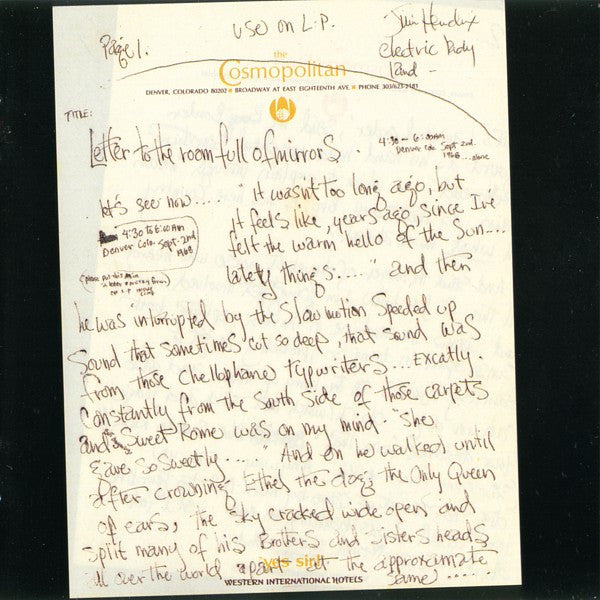 Page 1.
use on L.P.
Jimi Hendrix
electric lady
land -
the
Cosmopolitan
DENVER, COLORADO 80202 • BROADWAY AT EAST EIGHTEENTH AVE. • PHONE 303/623-2181
TITLE:
Letter to the room full of mirrors.
4:30 - 6:00 AM
Denver Colo. Sept 2nd.
1968 ... alone
let's see now..... "It wasn't too long ago, but
it feels like, years ago, since I've
felt the warm hello of the Sun...
lately things....." and then
4:30 to 6:00 AM
Denver Colo. Sept-2nd
1968
(please put this in
a letter
on L.P.
he was interrupted by the Slow motion Speeded up
Sound that sometimes cut so deep, that sound was
from those Chellophane typwriters... Excatly.
Constantly from the South Side of those carpets
and Sweet Rome was on my mind. "She
gave so sweetly....." And on he walked until
after crowning Ethel the dog, the Only Queen
of ears, the sky cracked wide open and
split many of his Brothers and Sisters heads
all over the world apart at the approximate
same.....
yes sir!
WESTERN INTERNATIONAL HOTELS